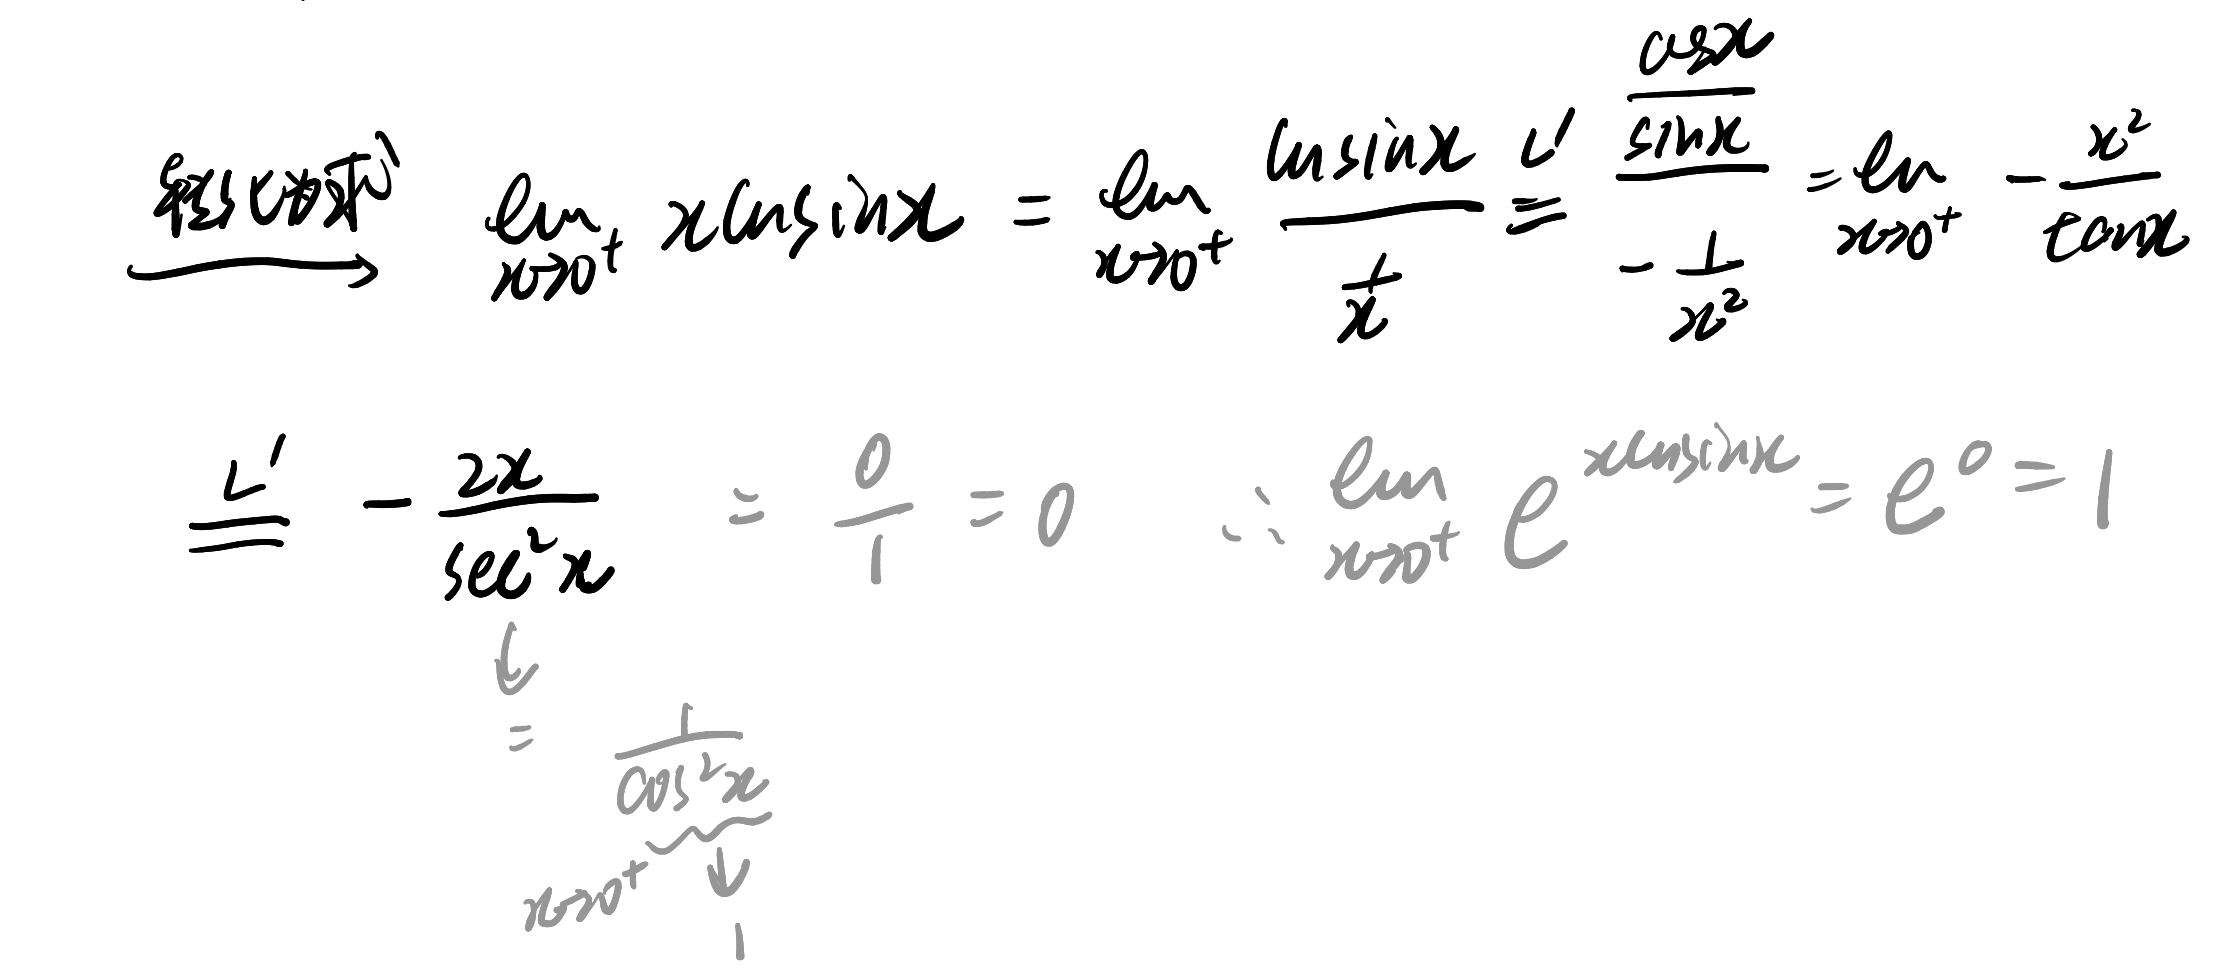 转化为求 lim x→0⁺ x ln sin x = lim x→0⁺ (ln sin x)/(1/x) =^{L'} (cos x/sin x)/(-1/x²) = lim x→0⁺ - x²/tan x
=^{L'} - 2x/sec²x = 0/1 = 0 ∴ lim x→0⁺ e^{x ln sin x} = e⁰ = 1
↓
= 1/cos²x
x→0⁺ ↓
1